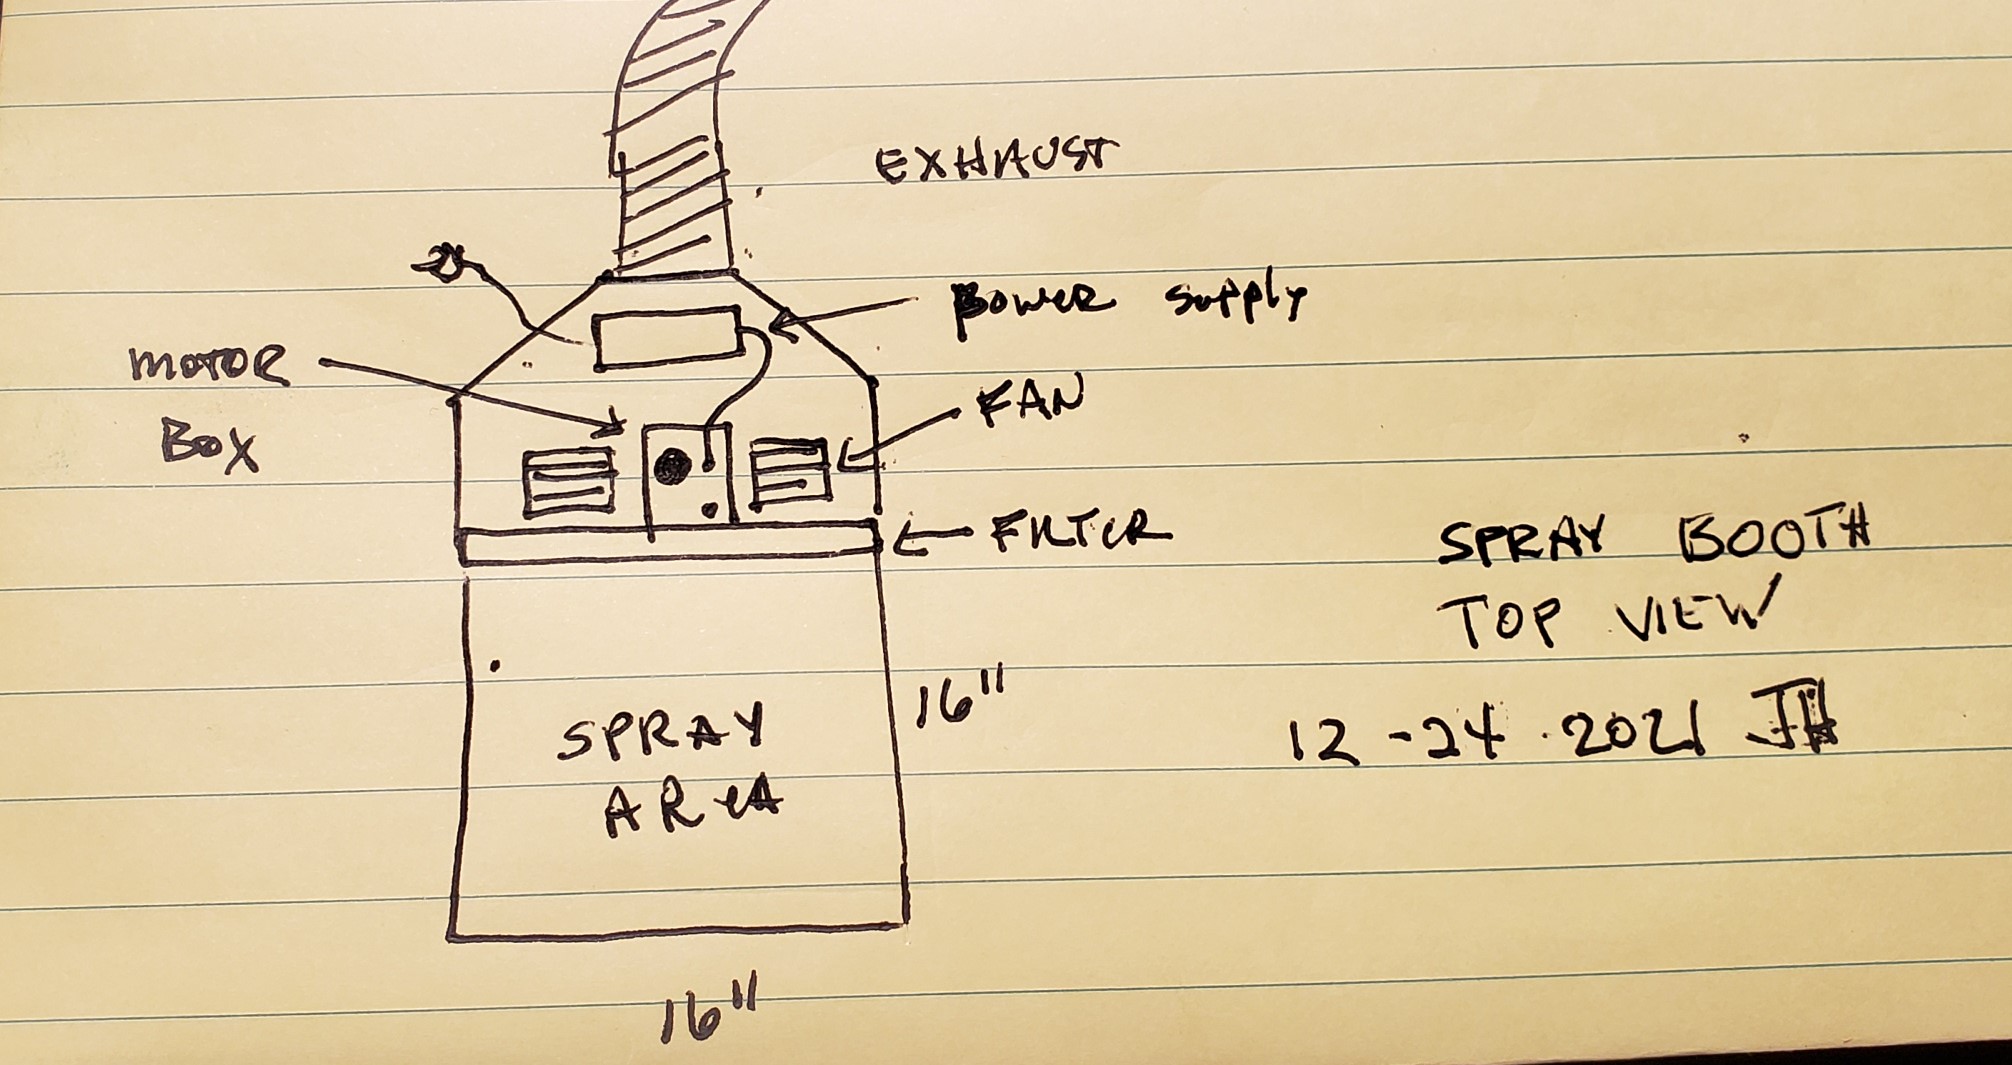 EXHAUST
Power supply
MOTOR
Box
FAN
FILTER
SPRAY BOOTH
TOP VIEW
16"
12-24.2021 JH
SPRAY
AREA
16"